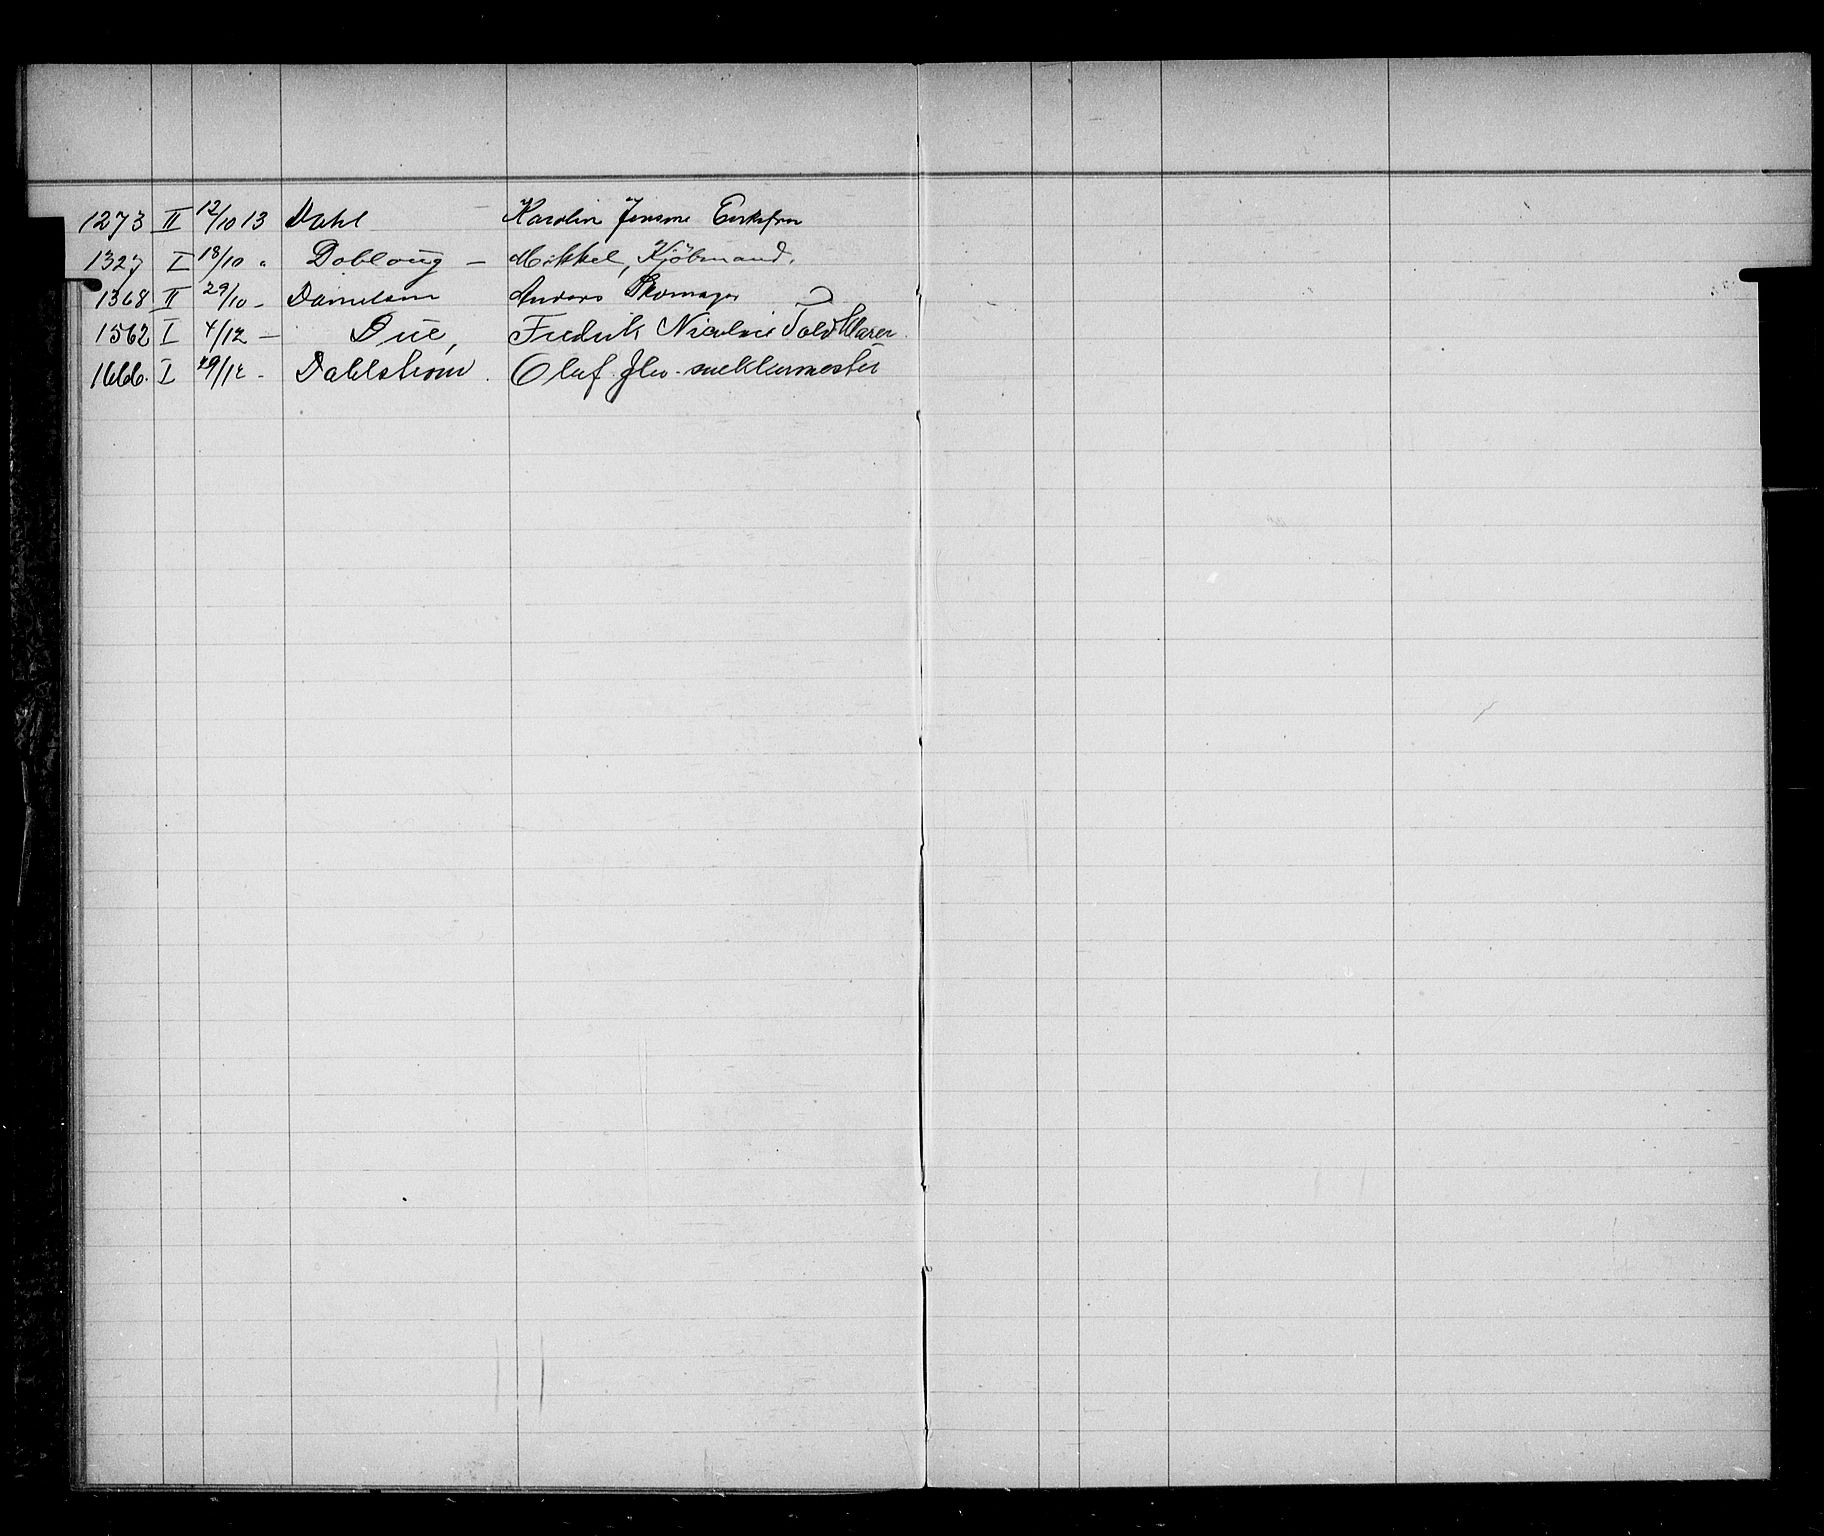 1273 II 12/10 13 Dahl Karolin Jensine Enkefru
1327 I 18/10 " Dobloug – Mikkel, Kjöbmand.
1368 II 29/10 - Danielsen Anders Skomager
1562 I 4/12 — Due, Fredrik Nicolai Toldklarer
1666. I 29/12 - Dahlstrøm. Oluf